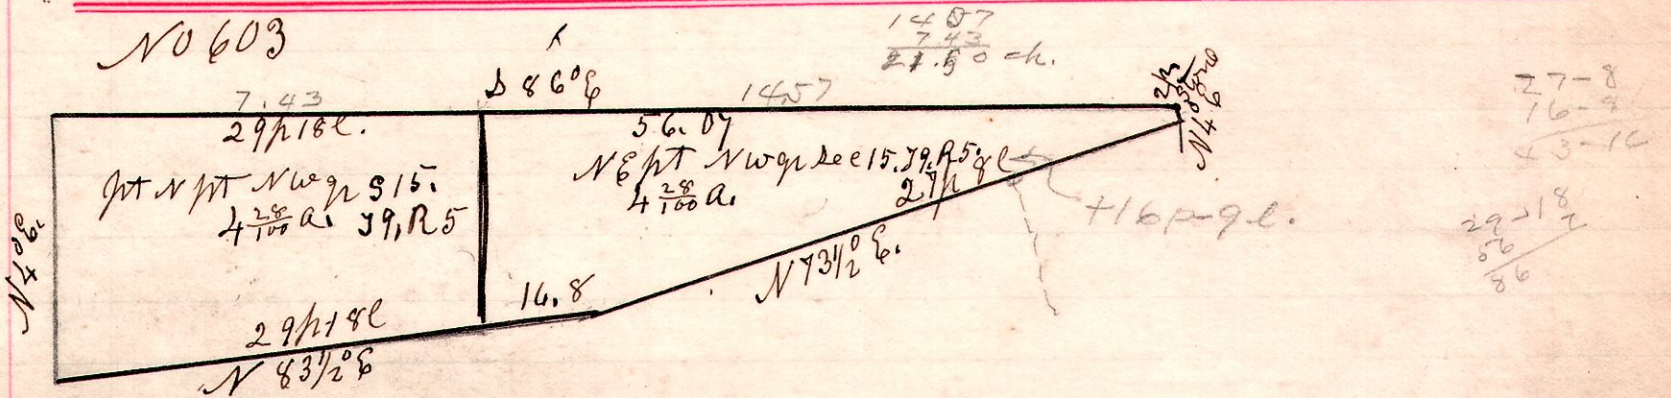 No 603
1407
743
21.50 ch.
S 86° E
7.43
1457
29p18l.
56.07
pt N pt Nwqr S15.
4 28/100 a. T9, R5
NE pt Nwqr Sec 15. T9. R5.
4 28/100 a.
27p 8l
+16p-9l.
N 4° 3/4 E
N 73 1/2° E.
16.8
29p18l
N 83 1/2° E
27-8
16-9
43-16
29-18
56 7
86